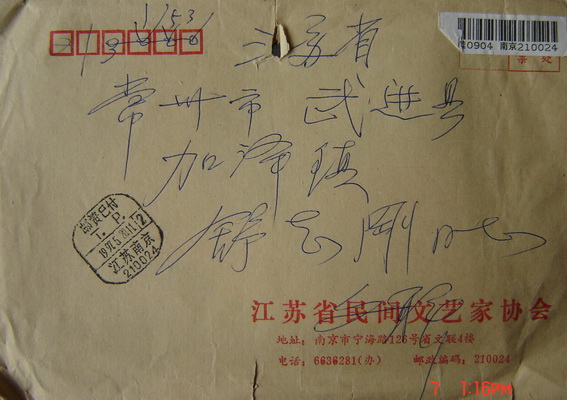 0904 南京210024
江苏省
常州市 武进县
加泽镇
舒志刚同志
邮资已付
I. P.
江苏南京
210024
江苏省民间文艺家协会
地址: 南京市宁海路126号省文联4楼
电话: 6636281(办) 邮政编码: 210024
7 1:16PM